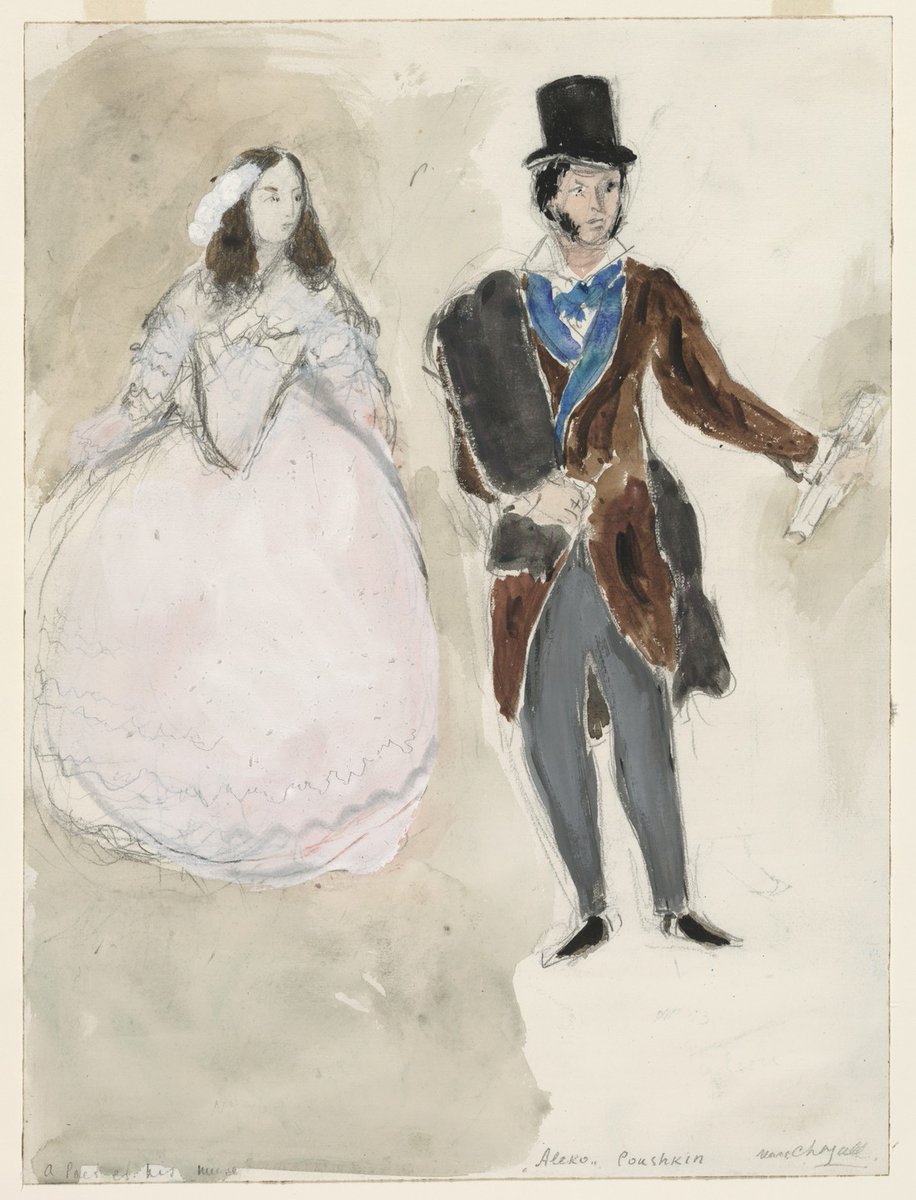 A Poet et his muse „Aleko„ Poushkin Marc Chagall